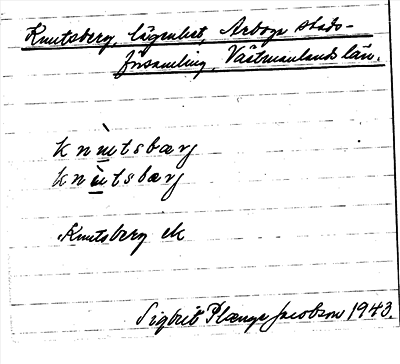 Knutsberg, lägenhet, Arboga stads-
församling, Västmanlands län.
knu̲tsbærj
knu̲tsbærj
Knutsberg ek
Sigbrit Plænge Jacobson 1943.